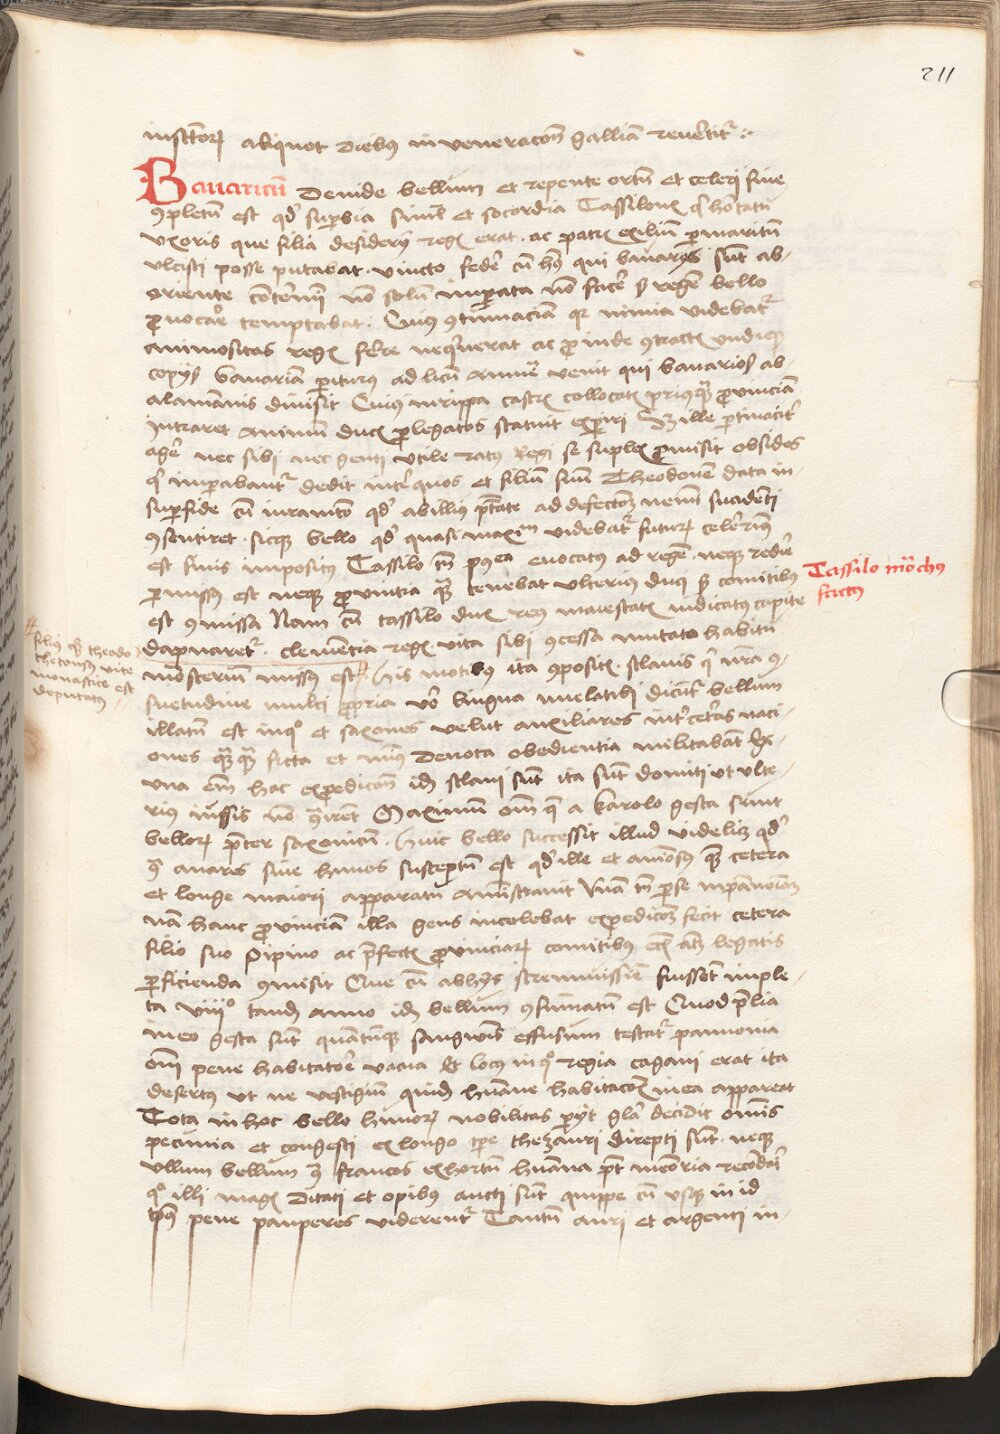 211
insctor aliquot diebus in veneracon galliam revertitr
Bavaricum Deinde bellum et repente ortum et celeri fine
9pletum est qd superbia simul et socordia Tassilonis q hortatu
uxoris que filia desiderij regis erat . ac patris exilium p maritum
ulcisci posse putabat . vincto federe cum hijs qui bavarijs sunt ab
oriente conterminj non solum imperata non facere sed regem bello
provocare temptabat . Cuius 9tumaciam qr nimia videbatr
animositas regis ferre nequiverat ac proinde 9tractis undique
copijs bavariam petiturus ad licum amnem venit qui bavarios ab
alamannis dimisit Cuius in rippa castris collocatis priusquam provinciam
intraret animum ducis p legatos statuit experiri Sed ille pertinaciter
agere nec sibi nec genti utile ratus Regi se suplex promisit obsides
qi imperabantr dedit inter quos et filium suum Theodonem data in
super fide cum iuramento qd ab illius ptate ad defectionem nemini suadenti
9sentiret . sicque bello qd quasi maximum videbatr futurum celerrimus
est finis impositus Tassilo tamen postea evocatus ad regem . neque redire
permissus est neque provintia quam tenebat ulterius duci sed comitibus
est 9missa Nam cum tassilo dux reus maiestatis iudicatus capite
dapnaretr . clementia regis . vita sibi 9cessa mutato habitu
monsterium missus est . His motibus ita 9positis . sclavis qi nra 9
suetudine wulci propria vero lingua welatibi dicuntr bellum
illatum est in quo et saxones velut auxiliares inter ceteras naci
ones quamquam ficta et minus devota obedientia militabant Ex
una enim hac expedicon idem sclavi sunt ita sunt domiti ut ulte
rius iussis non parerent Maximum omnium que a karolo gesta sunt
bellorum preter saxonicum . Huic bello successit illud videlicet qd
9tra avares sive hunos susceptum est qd ille et animosius quam cetera
et longe maiori apparatu aministravit Unam tamen per se in pannoniam
nam hanc provinciam illa gens incolebat expedicionem fecit cetera
filio suo Pipino ac prefectis provinciarum comitibus eciam atque legatis
perficienda 9misit Que cum ab hijs strenuissime fuissent imple
ta viijo tandem anno idem bellum 9summatum est Quod prelia
in eo gesta sunt quantumque sangwinis effusum testatr pannonia
omni pene habitatore vacua Et locus in quo regia cagani erat ita
desertus ut ne vestigium quidem humane habitacois in ea appareat
Tota in hoc bello hunorum nobilitas perijt gloria decidit omnis
pecunia et congesti ex longo tempore thezauri direpti sunt . neque
ullum bellum 9tra francos exhortum humana potest memoria recordari
quo illi magis ditati et opibus aucti sunt quippe cum usque in id
tempus pene pauperes viderentr Tantum auri et argenti in
Tassilo monchus
factus
filius quoque theodo
thetonsus vite
monastice est
deputatus